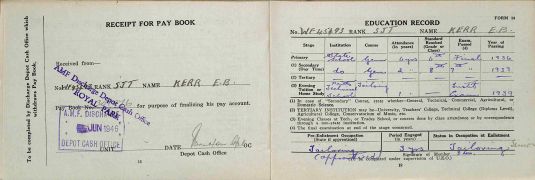 RECEIPT FOR PAY BOOK
To be completed by Discharge Depot Cash Office which withdraws Pay Book.
Received from—
No. RANK SJT NAME KERR E.B.
Pay Book for purpose of finalising his pay account.
AMF Discharge Depot Cash Office
ROYAL PARK
A.M.F. DISCH
JUN 1946
DEPOT CASH OFFICE
UNIT DATE OC
Depot Cash Office
18
EDUCATION RECORD
FORM 14
No. WF45693 RANK SJT NAME KERR E.B.
Stage Institution Course Attendance (in years) Standard Reached (Grade or Class) Exam. Passed (4) Year of Passing
Primary State School Gen 6 yrs 6th Final 1936
(1) Secondary (Over Time) do Gen 2 8th 1937
(2) Tertiary
(3) Evening Tuition or Home Study 1939
(1) In case of "Secondary" Course, state whether—General, Technical, Commercial, Agricultural, or Domestic Science.
(2) TERTIARY INSTITUTION may be—University, Teachers' College, Technical College (Diploma Level), Agricultural College, Conservatorium of Music, etc.
(3) Evening Classes or Tech., or Trades School, or courses done by class attendance or by correspondence through a non-state institution.
(4) The final examination at the end of stage concerned.
Pre-Enlistment Occupation (State if apprenticed) Period Engaged (in Years) Status in Occupation at Enlistment
Tailoring 3 yrs Tailoring
(Approved)
(To be completed under supervision of U.E.O.) Signature of Member
19